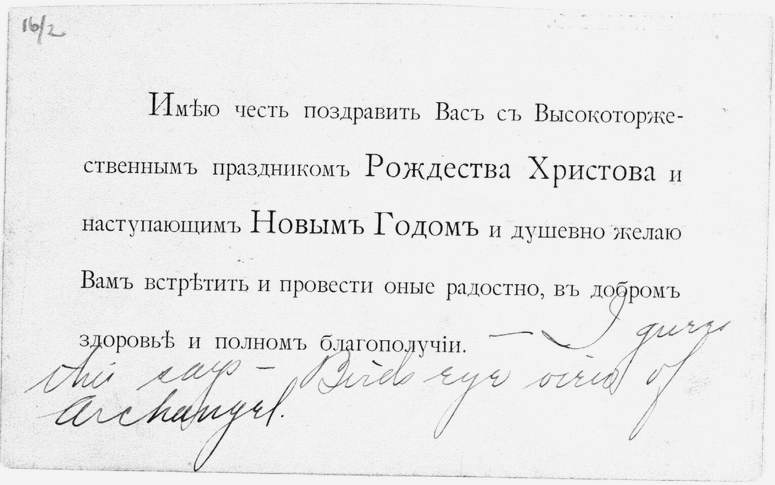 16/2
Имѣю честь поздравить Васъ съ Высокоторже-
ственнымъ праздникомъ Рождества Христова и
наступающимъ Новымъ Годомъ и душевно желаю
Вамъ встрѣтить и провести оные радостно, въ добромъ
здоровьѣ и полномъ благополучіи. — I guess
this says - Birds eye view of
Archangel.